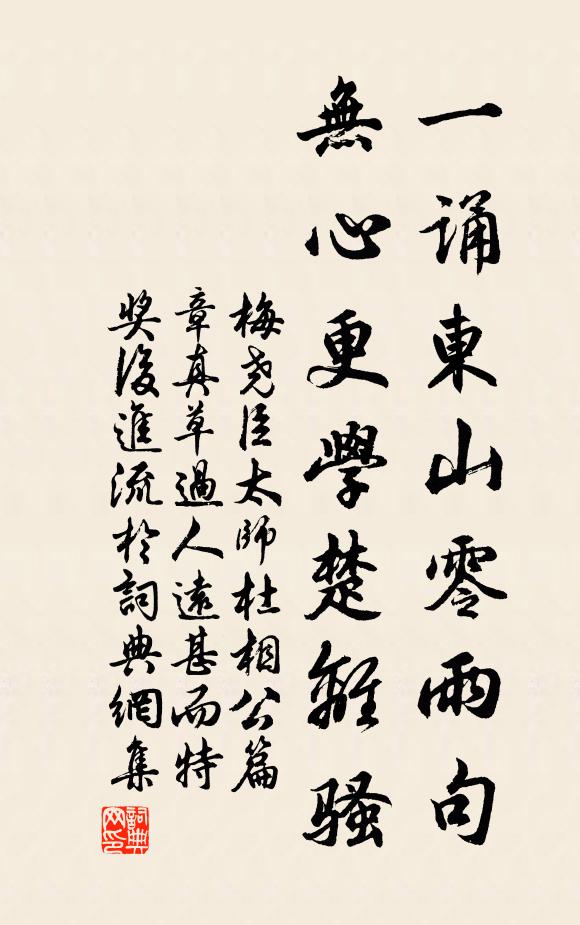 一誦東山零雨句
無心更學楚離騷
梅堯臣太師杜相公篇
章真草過人遠甚而特
奨後進流於詞典網集
詞典
网印